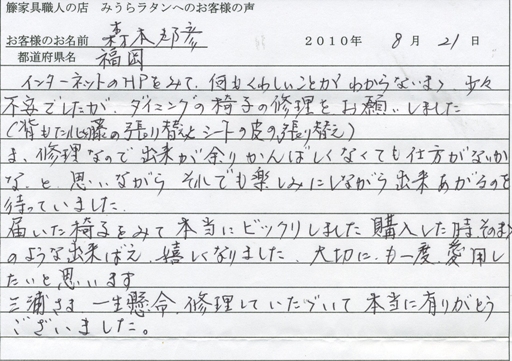 籐家具職人の店 みうらラタンへのお客様の声
お客様のお名前 森本邦彦 2010年 8月21日
都道府県名 福岡
インターネットのHPをみて、何もくわしいことがわからないまゝ 少々
不安でしたが、ダイニングの椅子の修理をお願いしました
(背もたれ籐の張り替えとシートの皮の張り替え)
ま、修理なので出来が余りかんばしくなくても仕方がないか
な、と思いながら それでも楽しみにしながら出来あがるのを
待っていました。
届いた椅子をみて本当にビックリしました 購入した時そのまま
のような出来ばえ、嬉しくなりました、大切に、も一度、愛用し
たいと思います
三浦さま 一生懸命、修理していただいて 本当に有りがとう
ございました。